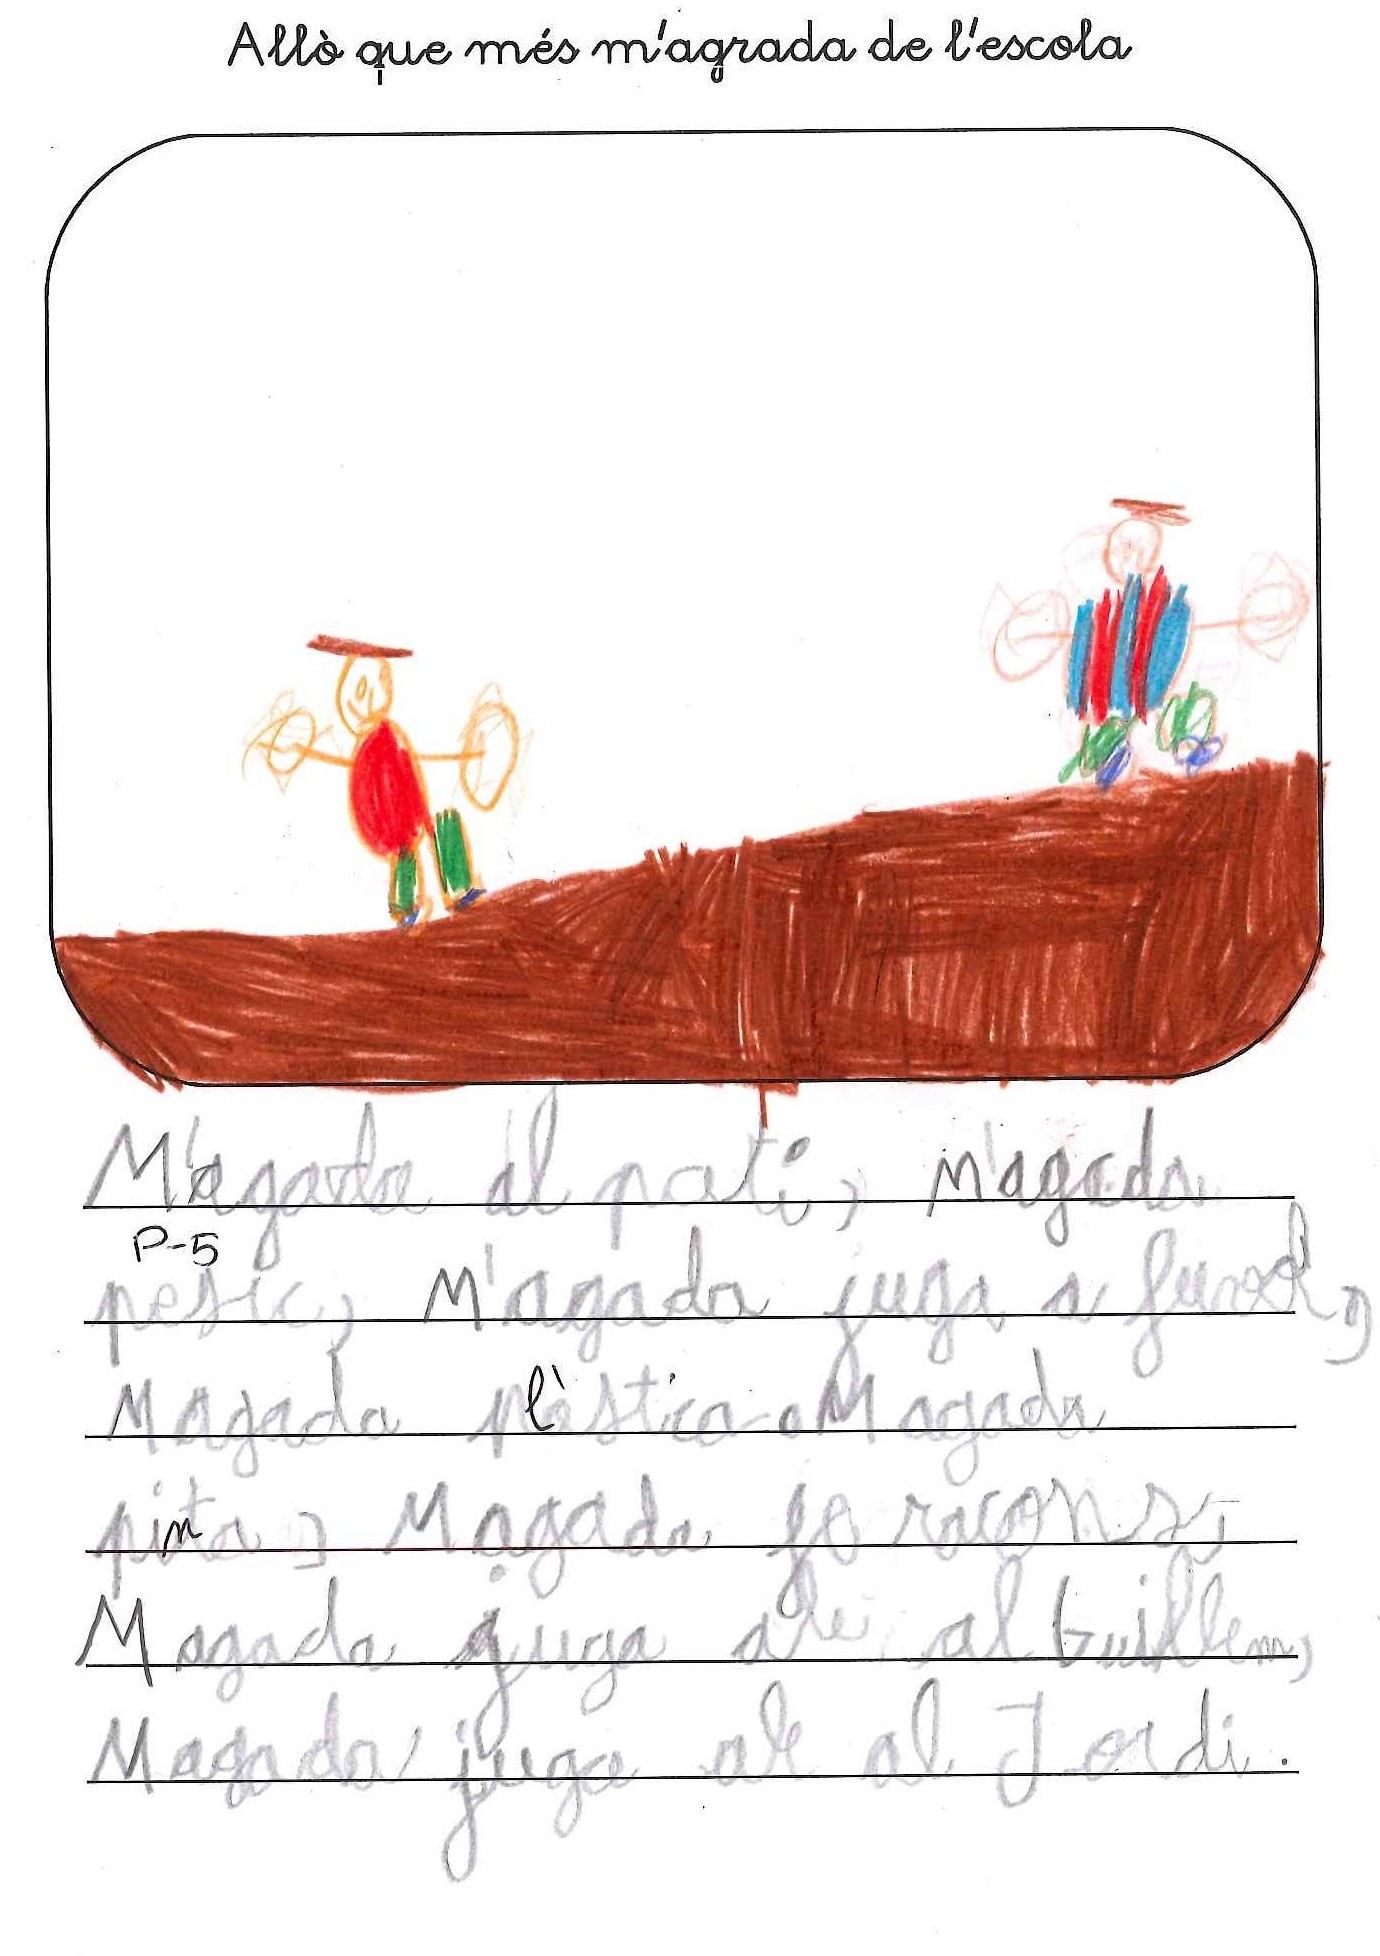 Allò que més m'agrada de l'escola
M'agada al pati, M'agada
P-5
pesic, M'agada juga a furvol,
Magada plàstica. Magada
pinta, Magada fe racons,
Magada juga ale al Guillem,
Magada juga ale al Jordi.